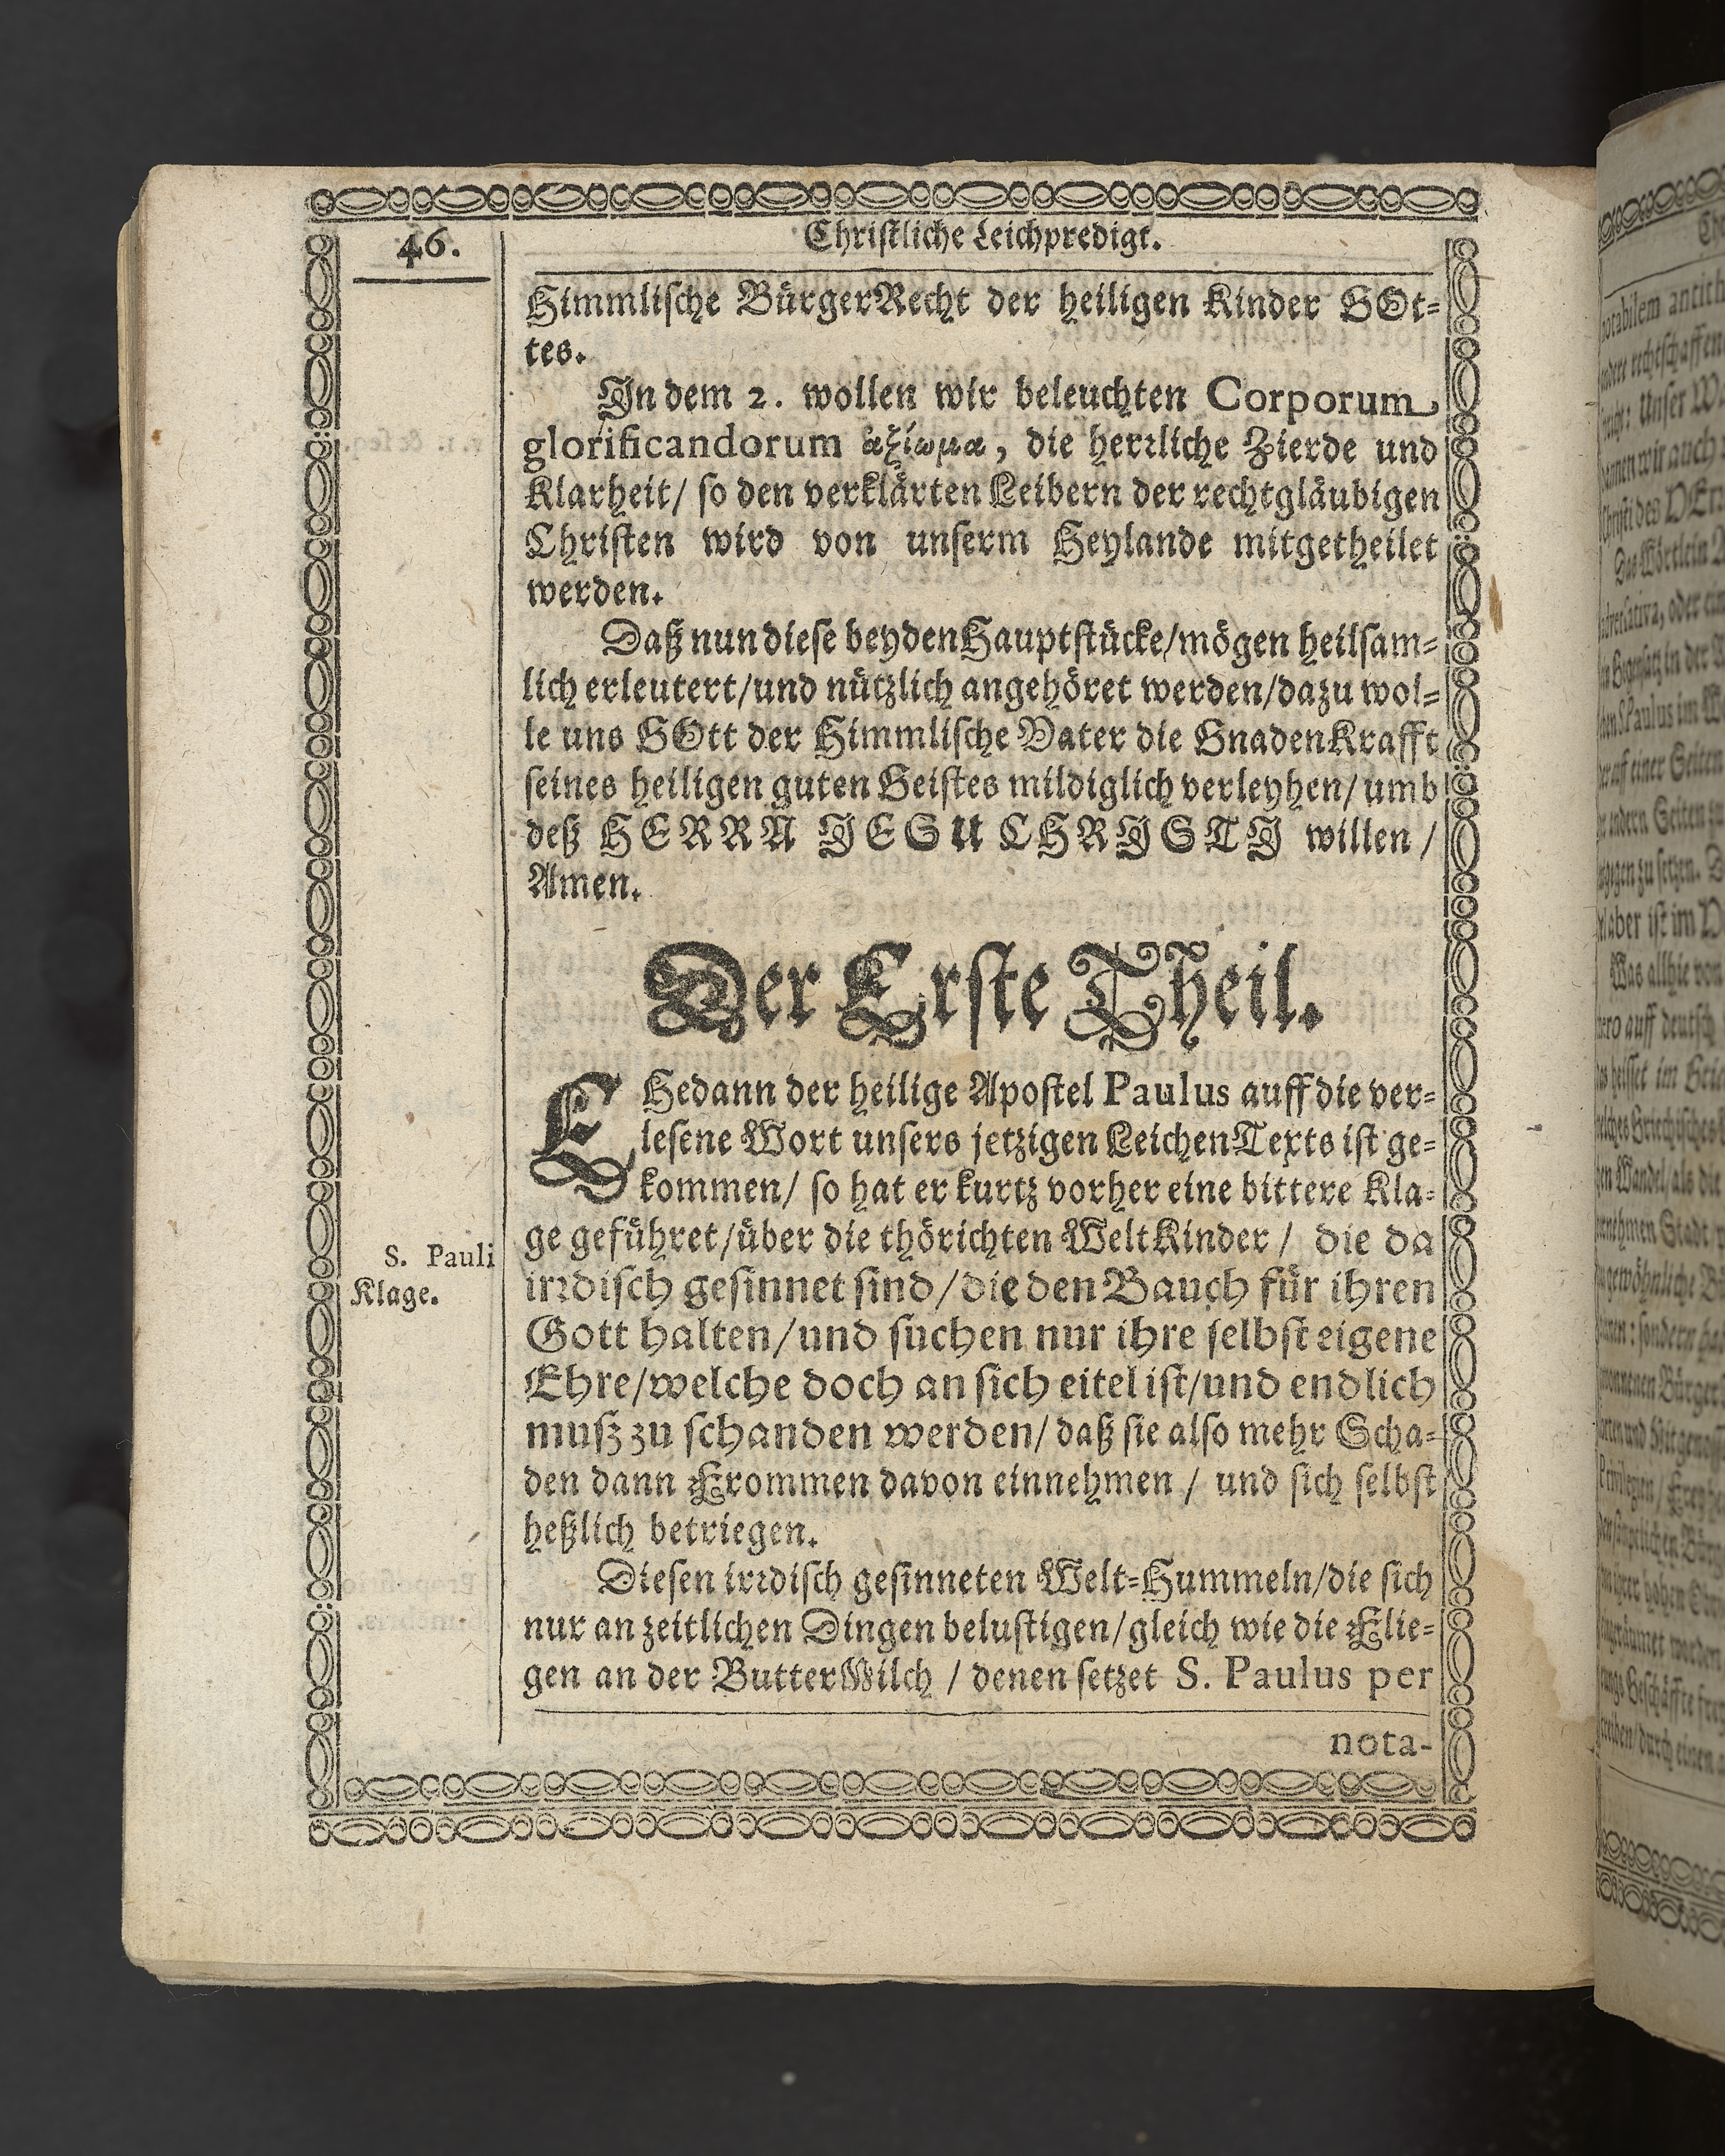 46.
Christliche Leichpredigt.
Himmlische BürgerRecht der heiligen Kinder GOt-
tes.
In dem 2. wollen wir beleuchten Corporum
glorificandorum ἀξίωμα, die herrliche Zierde und
Klarheit/ so den verklärten Leibern der rechtgläubigen
Christen wird von unserm Heylande mitgetheilet
werden.
Daß nun diese beyden Hauptstücke/mögen heilsam-
lich erleutert/und nützlich angehöret werden/dazu wol-
le uns GOtt der Himmlische Vater die GnadenKrafft
seines heiligen guten Geistes mildiglich verleyhen/ umb
deß HERRN JESU CHRISTI willen /
Amen.
Der Erste Theil.
EHedann der heilige Apostel Paulus auff die ver-
lesene Wort unsers jetzigen LeichenTexts ist ge-
kommen/ so hat er kurtz vorher eine bittere Kla-
ge geführet/über die thörichten WeltKinder / die da
S. Pauli
Klage.
irrdisch gesinnet sind/die den Bauch für ihren
Gott halten/und suchen nur ihre selbst eigene
Ehre/welche doch an sich eitel ist/und endlich
muß zu schanden werden/ daß sie also mehr Scha-
den dann Frommen davon einnehmen / und sich selbst
heßlich betriegen.
Diesen irrdisch gesinneten Welt-Hummeln/die sich
nur an zeitlichen Dingen belustigen/gleich wie die Flie-
gen an der ButterMilch / denen setzet S. Paulus per
nota-